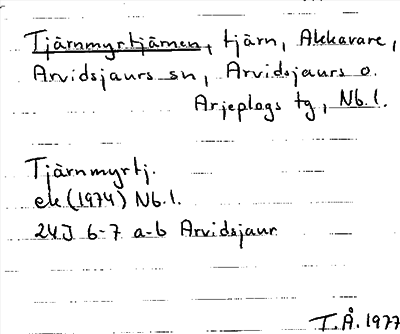 Tjärnmyrtjärnen, tjärn, Akkavare,
Arvidsjaurs sn, Arvidsjaurs o.
Arjeplogs tg, Nb.l.
Tjärnmyrtj.
ek (1974) Nb.l.
24J 6-7 a-b Arvidsjaur
T.Å. 1977